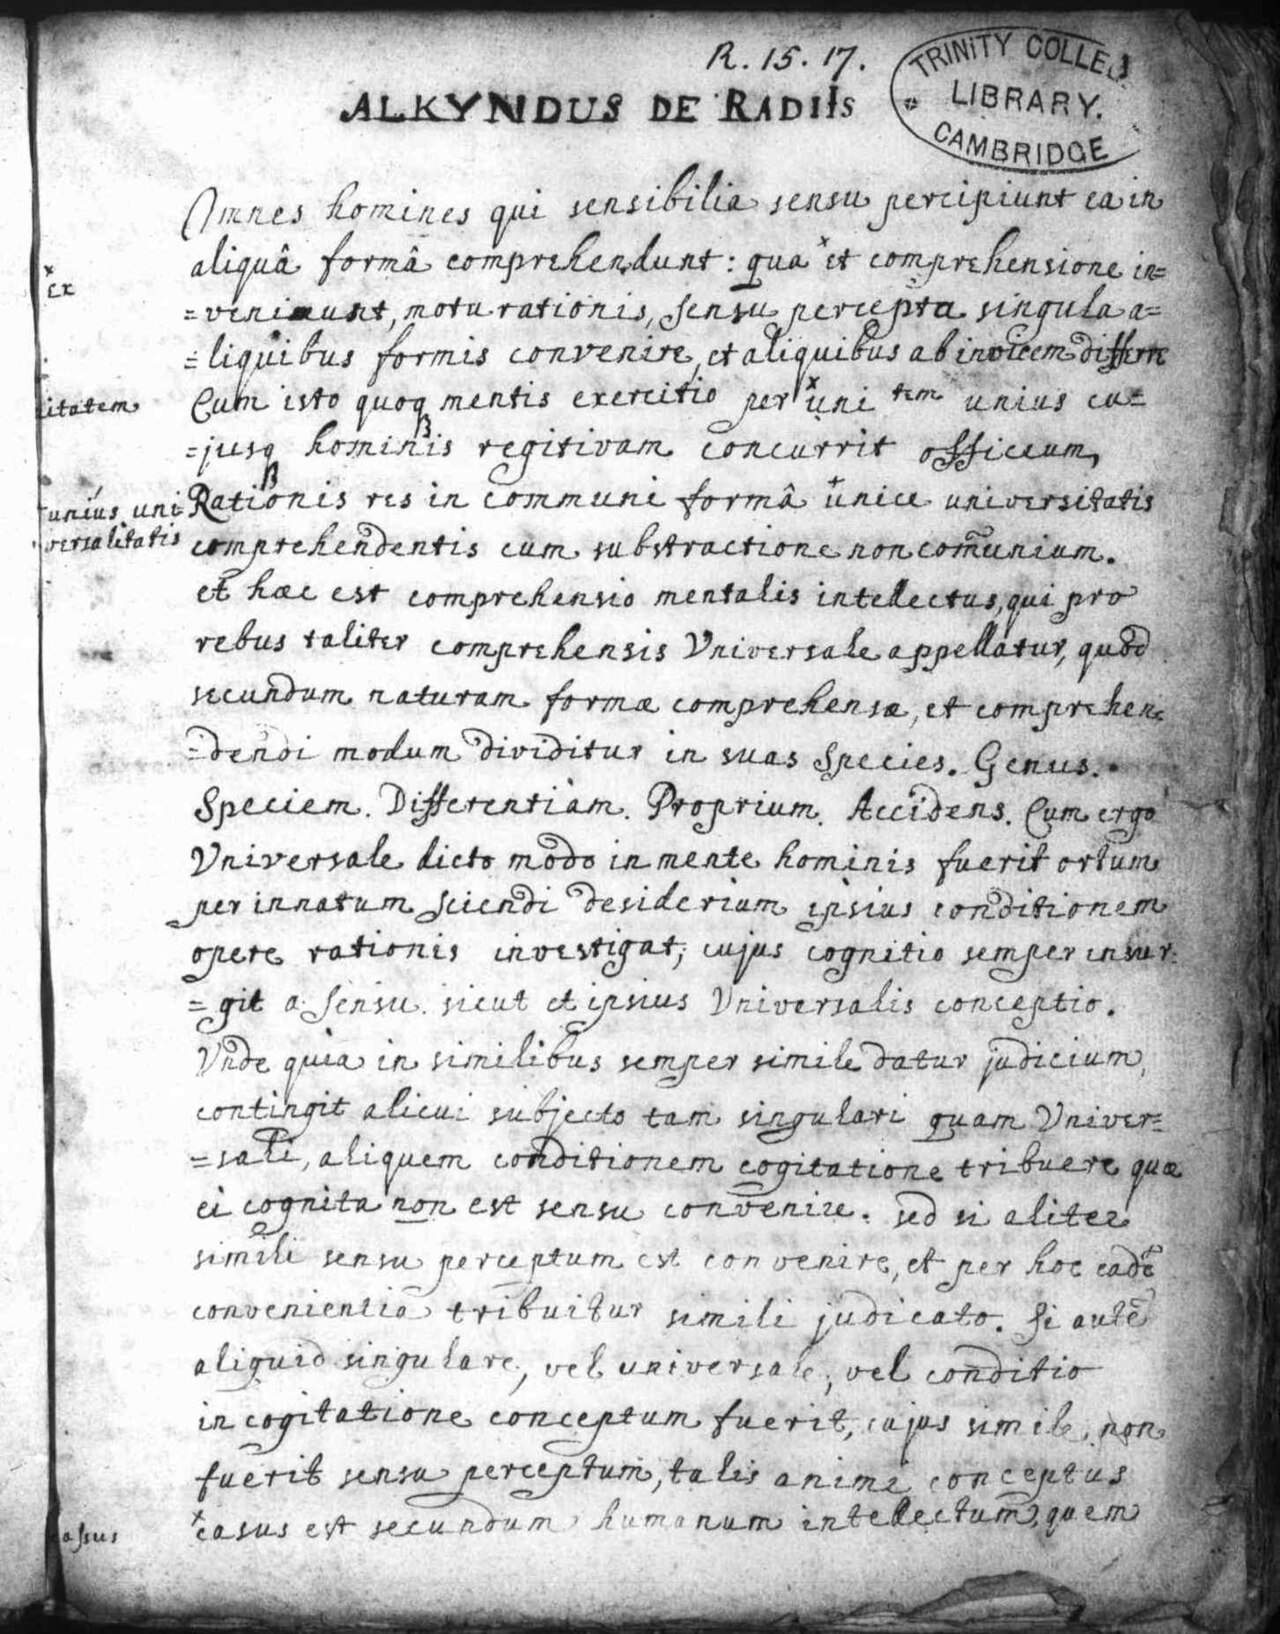 R. 15. 17.
TRINITY COLLE
LIBRARY.
CAMBRIDGE
ALKYNDUS DE RADIIS
Omnes homines qui sensibilia sensu percipiunt ea in
aliquâ formâ comprehendunt: qua x et comprehensione in=
x ex
=veniunt, motu rationis, sensu percepta singula a=
=liquibus formis convenire, et aliquibus ab invicem differre
itatem
Cum isto quoq mentis exercitio per x uni tem unius cu=
=jusq hominis regitivam concurrit officium,
unius uni
versalitatis
Rationis res in communi formâ unice universitatis
comprehendentis cum substractione non com̄unium.
et hæc est comprehensio mentalis intellectus, qui pro
rebus taliter comprehensis Vniversale appellatur, quod
secundum naturam formæ comprehensæ, et comprehen=
=dendi modum dividitur in suas Species. Genus.
Speciem. Differentiam. Proprium. Accidens. Cum ergo
Vniversale dicto modo in mente hominis fuerit ortum
per innatum sciendi desiderium ipsius conditionem
opere rationis investigat; cujus cognitio semper insur=
=git a sensu. sicut et ipsius Vniversalis conceptio.
Vnde quia in similibus semper simile datur judicium,
contingit alicui subjecto tam singulari quam Vniver=
=sali, aliquem conditionem cogitatione tribuere quæ
ei cognita non est sensu convenire. sed si aliter
simili sensu perceptum est convenire, et per hoc eadē
convenientia tribuitur simili judicato. Si autē
aliquid singulare, vel universale, vel conditio
in cogitatione conceptum fuerit, cujus simile non
fuerit sensu perceptum, talis animi conceptus
assus
x casus est secundum humanum intellectum, quem